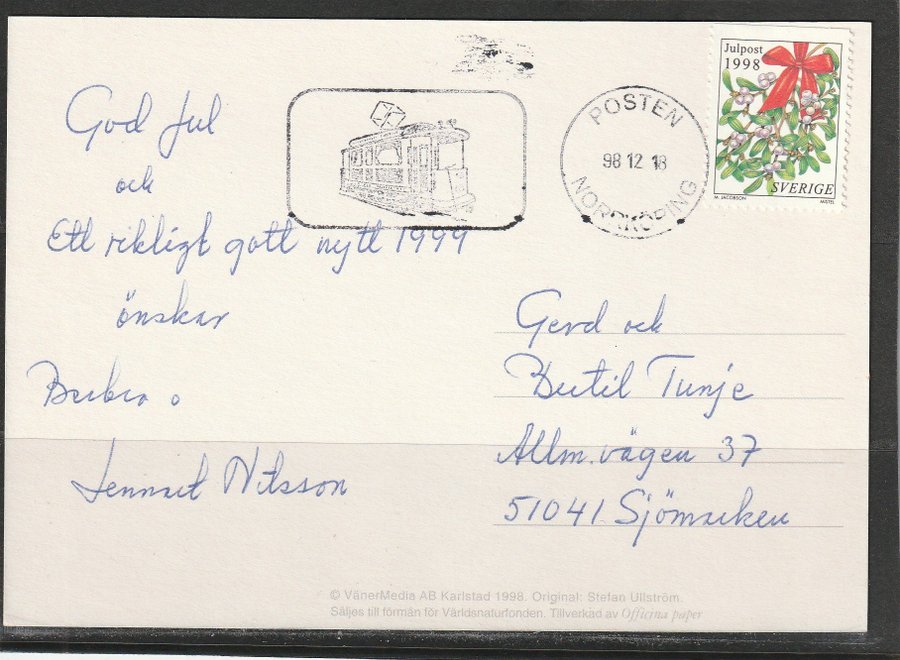 God Jul
och
Ett riktigt gott nytt 1999
önskar
Barbro o
Lennart Nilsson
POSTEN
98 12 18
NORRKÖPING
Julpost
1998
SVERIGE
M. JACOBSON MISTEL
Gerd och
Bertil Tunje
Allm. vägen 37
51041 Sjömarken
© VänerMedia AB Karlstad 1998. Original: Stefan Ullström.
Säljes till förmån för Världsnaturfonden. Tillverkad av Officina paper